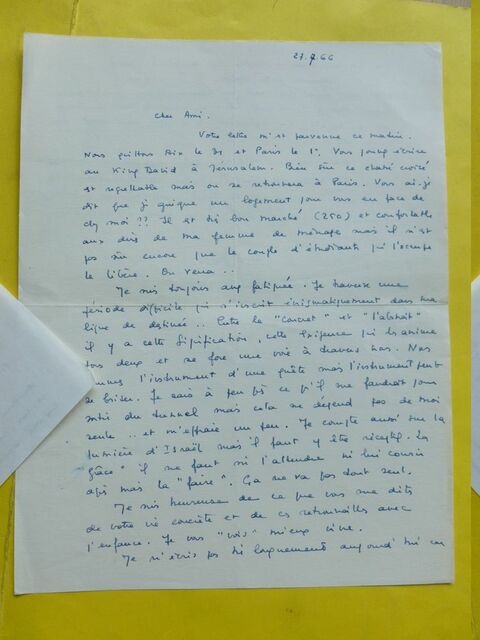 27.7.66
Cher Ami.
Votre lettre m'est parvenue ce matin.
Nous quittons Aix le 31 et Paris le 1er. Vous pouvez écrire
au King David à Jérusalem. Bien sûr ce chassé croisé
est regrettable mais on se retrouvera à Paris. Vous ai-je
dit que j'ai un logement pour vous en face de
chez moi ?? Il est très bon marché (250) et confortable
aux dires de ma femme de ménage mais il n'est
pas sûr encore que le couple d'étudiants qui l'occupe
le libère. On verra ..
Je suis toujours aux fatiguée. Je traverse une
période difficile qui s'inscrit énigmatiquement dans ma
ligne de destinée .. Entre le "concret" et "l'abstrait"
il y a cette signification, cette exigence qui ns anime
tous deux et se fore une voie à travers nous. Nous
sommes l'instrument d'une quête mais l'instrument peut
se briser. Je sais à peu près ce qu'il me faudrait pour
sortir du tunnel mais cela ne dépend pas de moi
seule .. et m'effraie un peu. Je compte aussi sur la
lumière d'Israël mais il faut y être réceptif. La
Grâce" il ne faut ni l'attendre ni lui courir
après mais la "faire". Ça ne va pas tout seul.
Je suis heureuse de ce que vous me dites
de votre vie concrète et de ces retrouvailles avec
l'enfance. Je vous "vois" mieux vivre.
Je n'écris pas très longuement aujourd'hui car